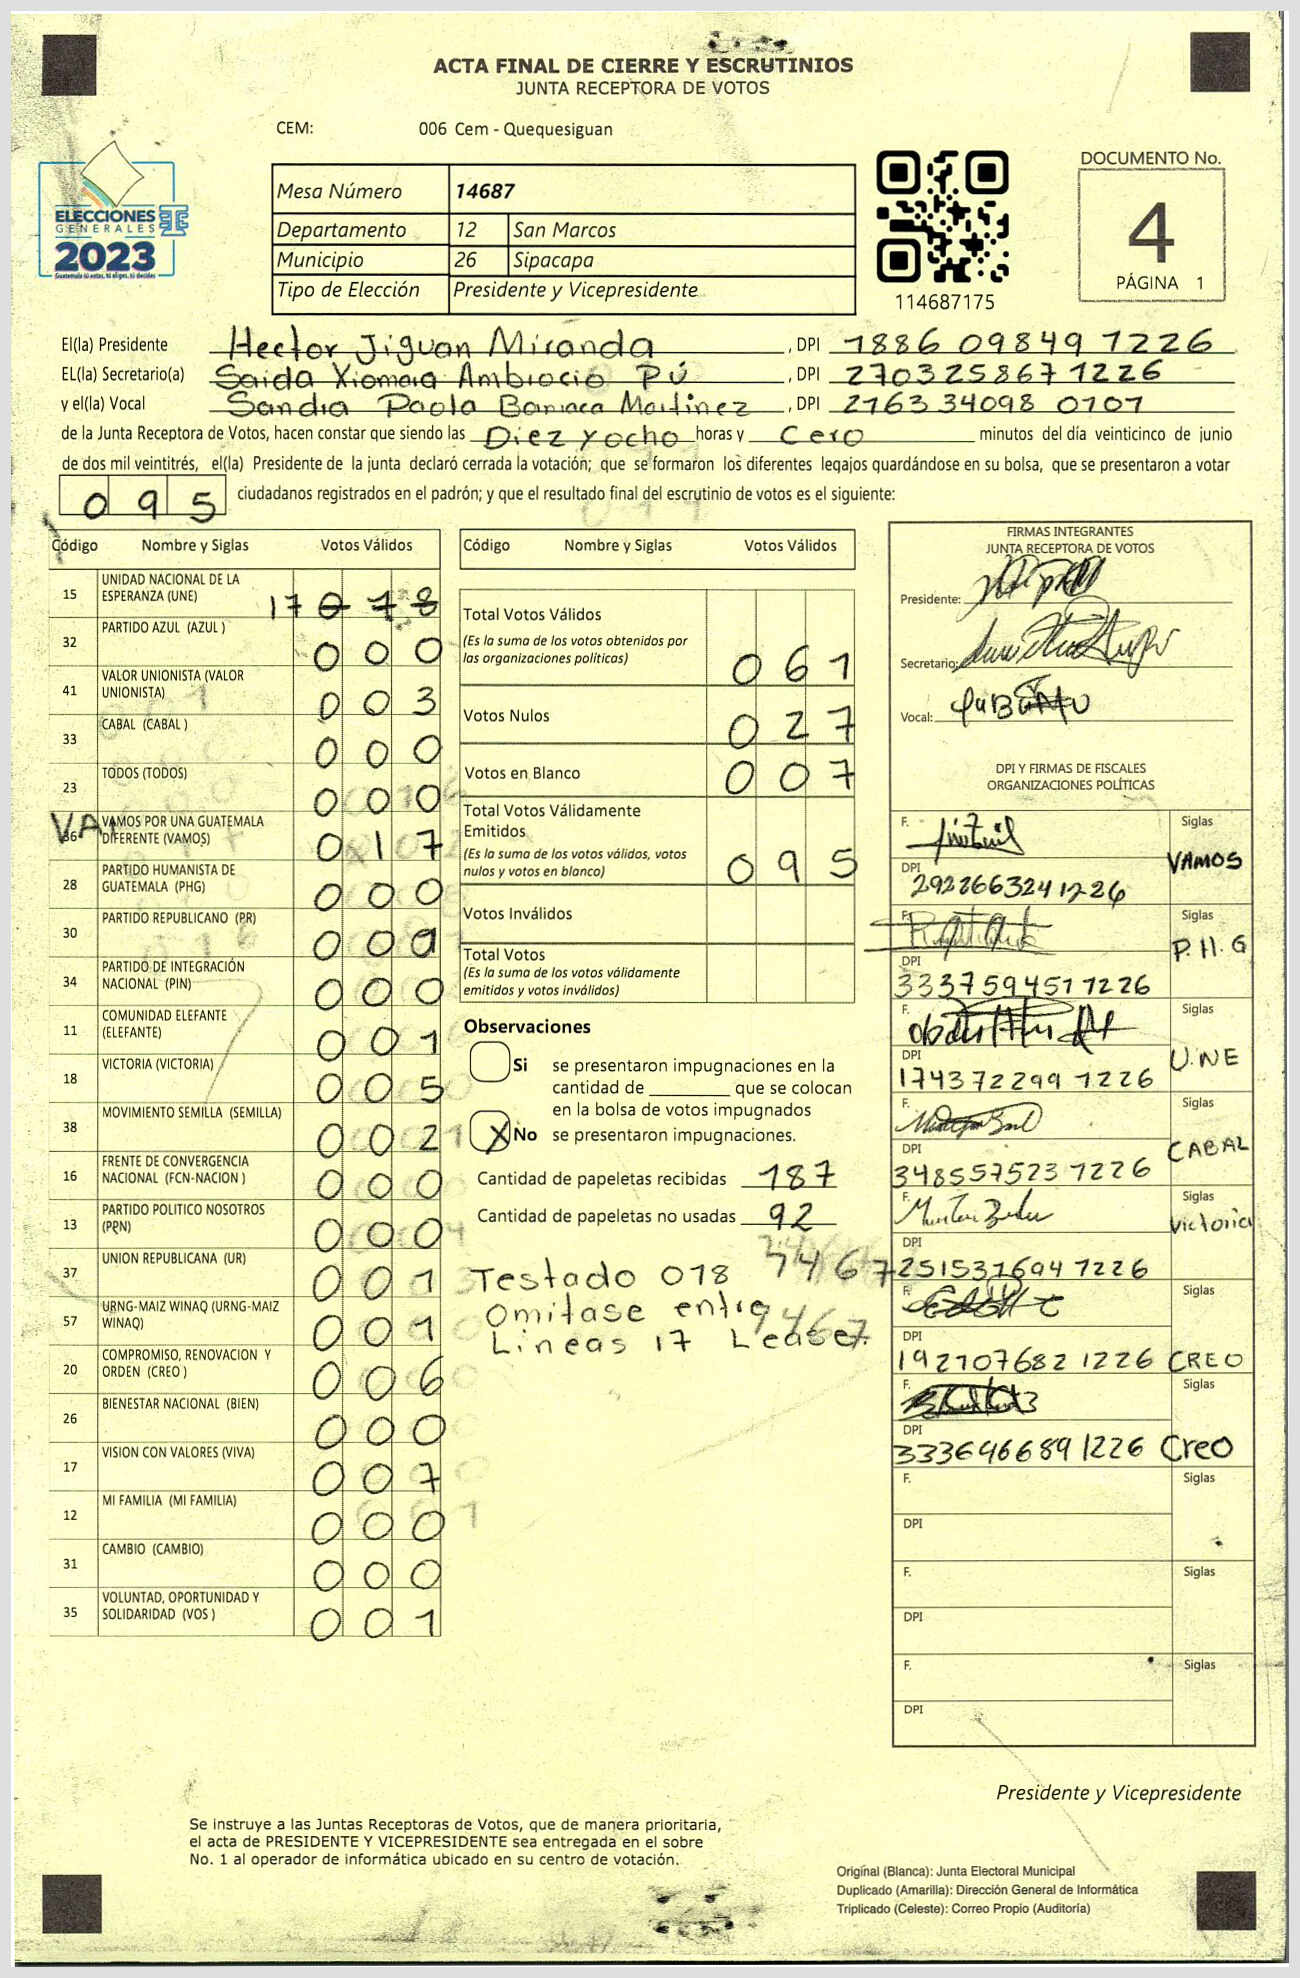 ACTA FINAL DE CIERRE Y ESCRUTINIOS
JUNTA RECEPTORA DE VOTOS
CEM: 006 Cem - Quequesiguan
ELECCIONES
GENERALES
2023
Mesa Número 14687
Departamento 12 San Marcos
Municipio 26 Sipacapa
Tipo de Elección Presidente y Vicepresidente
114687175
DOCUMENTO No.
4
PÁGINA 1
El(la) Presidente Hector Jiguan Miranda, DPI 1886 09849 1226
EL(la) Secretario(a) Saida Xiomara Ambrocio PÚ, DPI 270325867 1226
y el(la) Vocal Sandra Paola Barriaca Martinez, DPI 2163 34098 0101
de la Junta Receptora de Votos, hacen constar que siendo las Diez y ocho horas y Cero minutos del día veinticinco de junio
de dos mil veintitrés, el(la) Presidente de la junta declaró cerrada la votación; que se formaron los diferentes legajos quardándose en su bolsa, que se presentaron a votar
095 ciudadanos registrados en el padrón; y que el resultado final del escrutinio de votos es el siguiente:
Código Nombre y Siglas Votos Válidos
15 UNIDAD NACIONAL DE LA ESPERANZA (UNE) 17
32 PARTIDO AZUL (AZUL ) 000
41 VALOR UNIONISTA (VALOR UNIONISTA) 003
33 CABAL (CABAL ) 000
23 TODOS (TODOS) 000
36 VAMOS POR UNA GUATEMALA DIFERENTE (VAMOS) 017
28 PARTIDO HUMANISTA DE GUATEMALA (PHG) 000
30 PARTIDO REPUBLICANO (PR) 00
34 PARTIDO DE INTEGRACIÓN NACIONAL (PIN) 000
11 COMUNIDAD ELEFANTE (ELEFANTE) 001
18 VICTORIA (VICTORIA) 005
38 MOVIMIENTO SEMILLA (SEMILLA) 002
16 FRENTE DE CONVERGENCIA NACIONAL (FCN-NACION ) 000
13 PARTIDO POLITICO NOSOTROS (PPN) 000
37 UNION REPUBLICANA (UR) 001
57 URNG-MAIZ WINAQ (URNG-MAIZ WINAQ) 001
20 COMPROMISO, RENOVACION Y ORDEN (CREO ) 006
26 BIENESTAR NACIONAL (BIEN) 000
17 VISION CON VALORES (VIVA) 007
12 MI FAMILIA (MI FAMILIA) 000
31 CAMBIO (CAMBIO) 000
35 VOLUNTAD, OPORTUNIDAD Y SOLIDARIDAD (VOS ) 001
Código Nombre y Siglas Votos Válidos
Total Votos Válidos
(Es la suma de los votos obtenidos por
las organizaciones politicas) 061
Votos Nulos 027
Votos en Blanco 007
Total Votos Válidamente
Emitidos
(Es la suma de los votos válidos, votos
nulos y votos en blanco) 095
Votos Inválidos
Total Votos
(Es la suma de los votos válidamente
emitidos y votos inválidos)
Observaciones
Si se presentaron impugnaciones en la
cantidad de ________ que se colocan
en la bolsa de votos impugnados
X No se presentaron impugnaciones.
Cantidad de papeletas recibidas 187
Cantidad de papeletas no usadas 92
Testado 018
Omitase entre
Lineas 17 Lease.
FIRMAS INTEGRANTES
JUNTA RECEPTORA DE VOTOS
Presidente:
Secretario:
Vocal:
DPI Y FIRMAS DE FISCALES
ORGANIZACIONES POLÍTICAS
F. Siglas
VAMOS
DPI
2922663241226
F. Siglas
P.H.G
DPI
333759451 1226
F. Siglas
U.NE
DPI
174372299 1226
F. Siglas
CABAL
DPI
348557523 1226
F. Siglas
Victoria
DPI
251531694 1226
F. Siglas
DPI
192707682 1226 CREO
F. Siglas
DPI
333646689 1226 Creo
F. Siglas
DPI
F. Siglas
DPI
F. Siglas
DPI
Presidente y Vicepresidente
Se instruye a las Juntas Receptoras de Votos, que de manera prioritaria,
el acta de PRESIDENTE Y VICEPRESIDENTE sea entregada en el sobre
No. 1 al operador de informática ubicado en su centro de votación.
Original (Blanca): Junta Electoral Municipal
Duplicado (Amarilla): Dirección General de Informática
Triplicado (Celeste): Correo Propio (Auditoría)